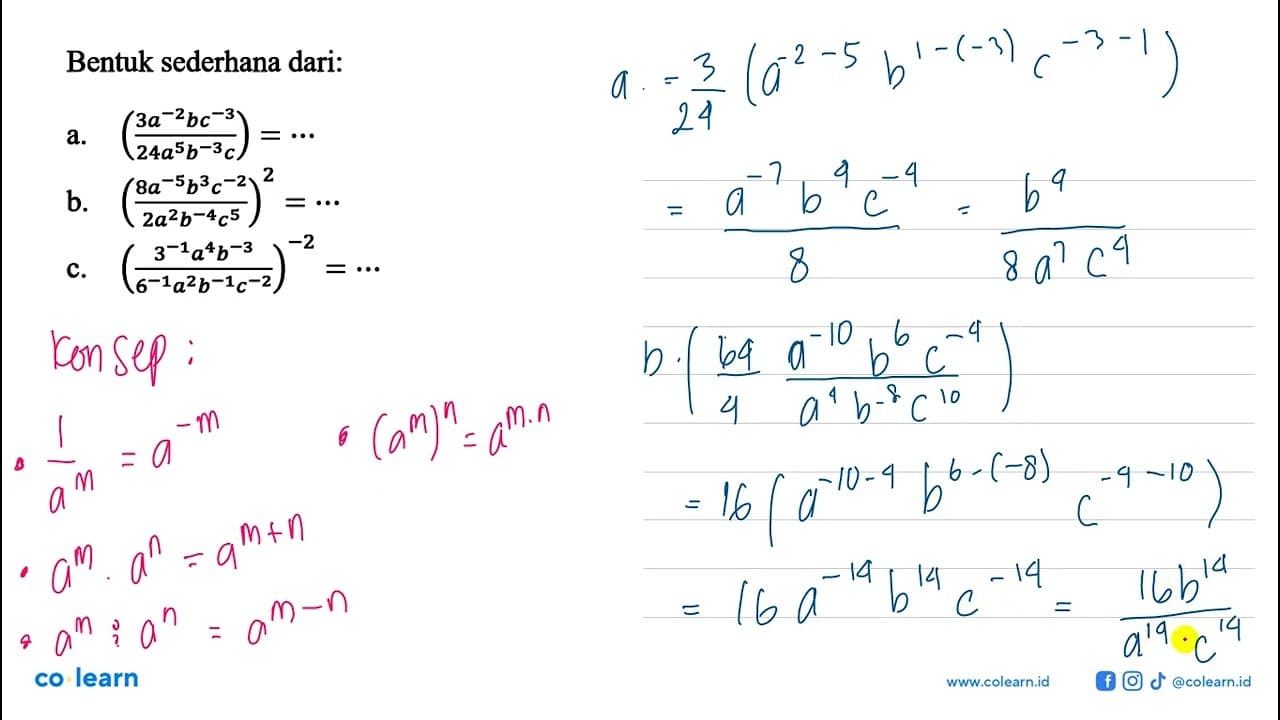 Bentuk sederhana dari:
a. (3a⁻²bc⁻³ / 24a⁵b⁻³c) = ...
b. (8a⁻⁵b³c⁻² / 2a²b⁻⁴c⁵)² = ...
c. (3⁻¹a⁴b⁻³ / 6⁻¹a²b⁻¹c⁻²)⁻² = ...
Konsep :
• 1/aᵐ = a⁻ᵐ
• (aᵐ)ⁿ = aᵐ·ⁿ
• aᵐ . aⁿ = aᵐ⁺ⁿ
• aᵐ : aⁿ = aᵐ⁻ⁿ
a. = 3/24 (a⁻²⁻⁵ b¹⁻⁽⁻³⁾ c⁻³⁻¹)
= a⁻⁷ b⁴ c⁻⁴ / 8 = b⁴ / 8 a⁷ c⁴
b. (64/4 a⁻¹⁰ b⁶ c⁻⁴ / a⁴ b⁻⁸ c¹⁰)
= 16 (a⁻¹⁰⁻⁴ b⁶⁻⁽⁻⁸⁾ c⁻⁴⁻¹⁰)
= 16 a⁻¹⁴ b¹⁴ c⁻¹⁴ = 16b¹⁴ / a¹⁴ . c¹⁴
co learn
www.colearn.id
@colearn.id